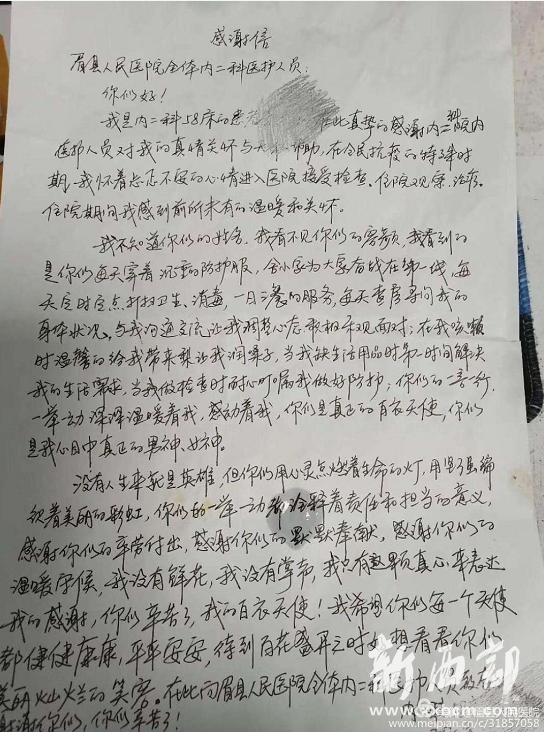 感谢信
眉县人民医院全体内二科医护人员:
你们好!
我是内二科58床的患者 在此真挚的感谢内二科
医护人员对我的真情关怀与大 帮助,在全民抗疫的特殊时
期,我怀着忐忑不安的心情进入医院接受检查。住院观察,治疗。
住院期间我感到前所未有的温暖和关怀。
我不知道你们的姓名,我看不见你们的容颜,我看到的
是你们每天穿着沉重的防护服,舍小家为大家奋战在第一线,每
天定时定点打扫卫生、消毒,一日三餐的服务,每天查房寻问我的
身体状况。与我沟通交流让我调整心态 积极乐观面对;在我咳嗽
时温馨的给我带来梨让我润嗓子,当我缺生活用品时第一时间解决
我的生活需求,当我做检查时耐心叮嘱我做好防护;你们的一言一行,
一举一动深深温暖着我,感动着我,你们是真正的白衣天使,你们
是我心目中真正的男神、女神。
没有人生来就是英雄,但你们用心灵点燃着生命的灯,用坚强编
织着美丽的彩虹,你们的一举一动都诠释着责任和担当的意义,
感谢你们的辛苦付出,感谢你们的默默奉献,感谢你们的
温暖守候,我没有鲜花,我没有掌声,我只有这颗真心来表达
我的感谢,你们辛苦了,我的白衣天使!我希望你们每一个天使
都健健康康,平平安安,待到百花盛开之时好想看看你们
美丽灿烂的笑容。在此向眉县人民医院全体内二科医护人员致敬
谢谢你们,你们辛苦了!
新西部
www.meipian.cn/31857058